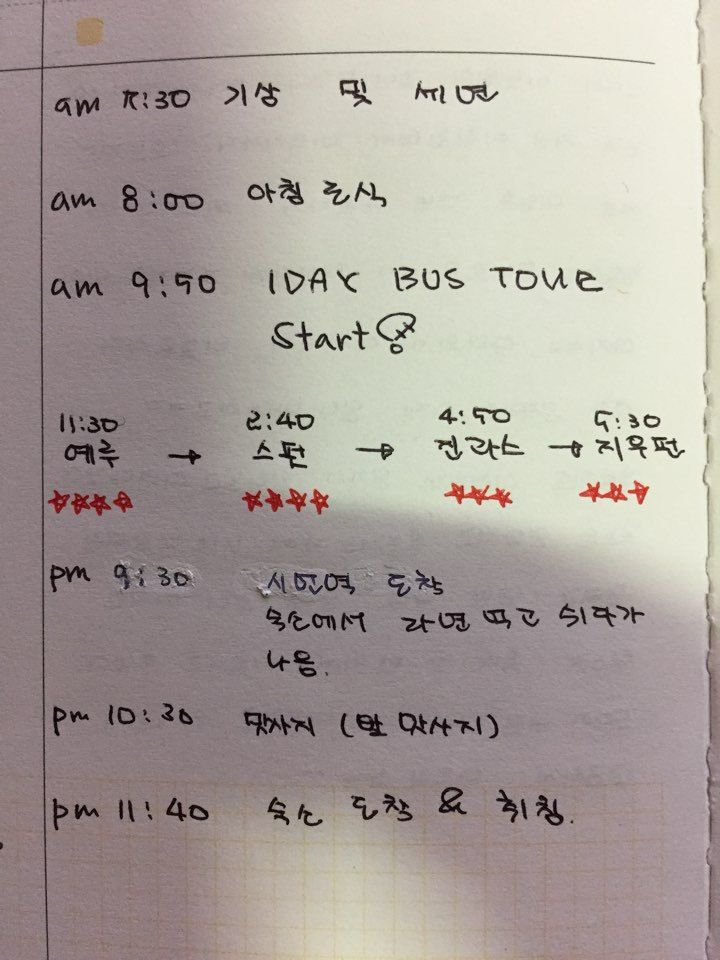 am 7:30 기상 및 세면
am 8:00 아침 조식
am 9:50 1DAY BUS TOUR
Start
11:30 2:40 4:50 5:30
예류 → 스펀 → 진과스 → 지우펀
pm 9:30 시먼역 도착
숙소에서 라면 먹고 쉬다가
나옴.
pm 10:30 맛사지 (발 맛사지)
pm 11:40 숙소 도착 & 취침.